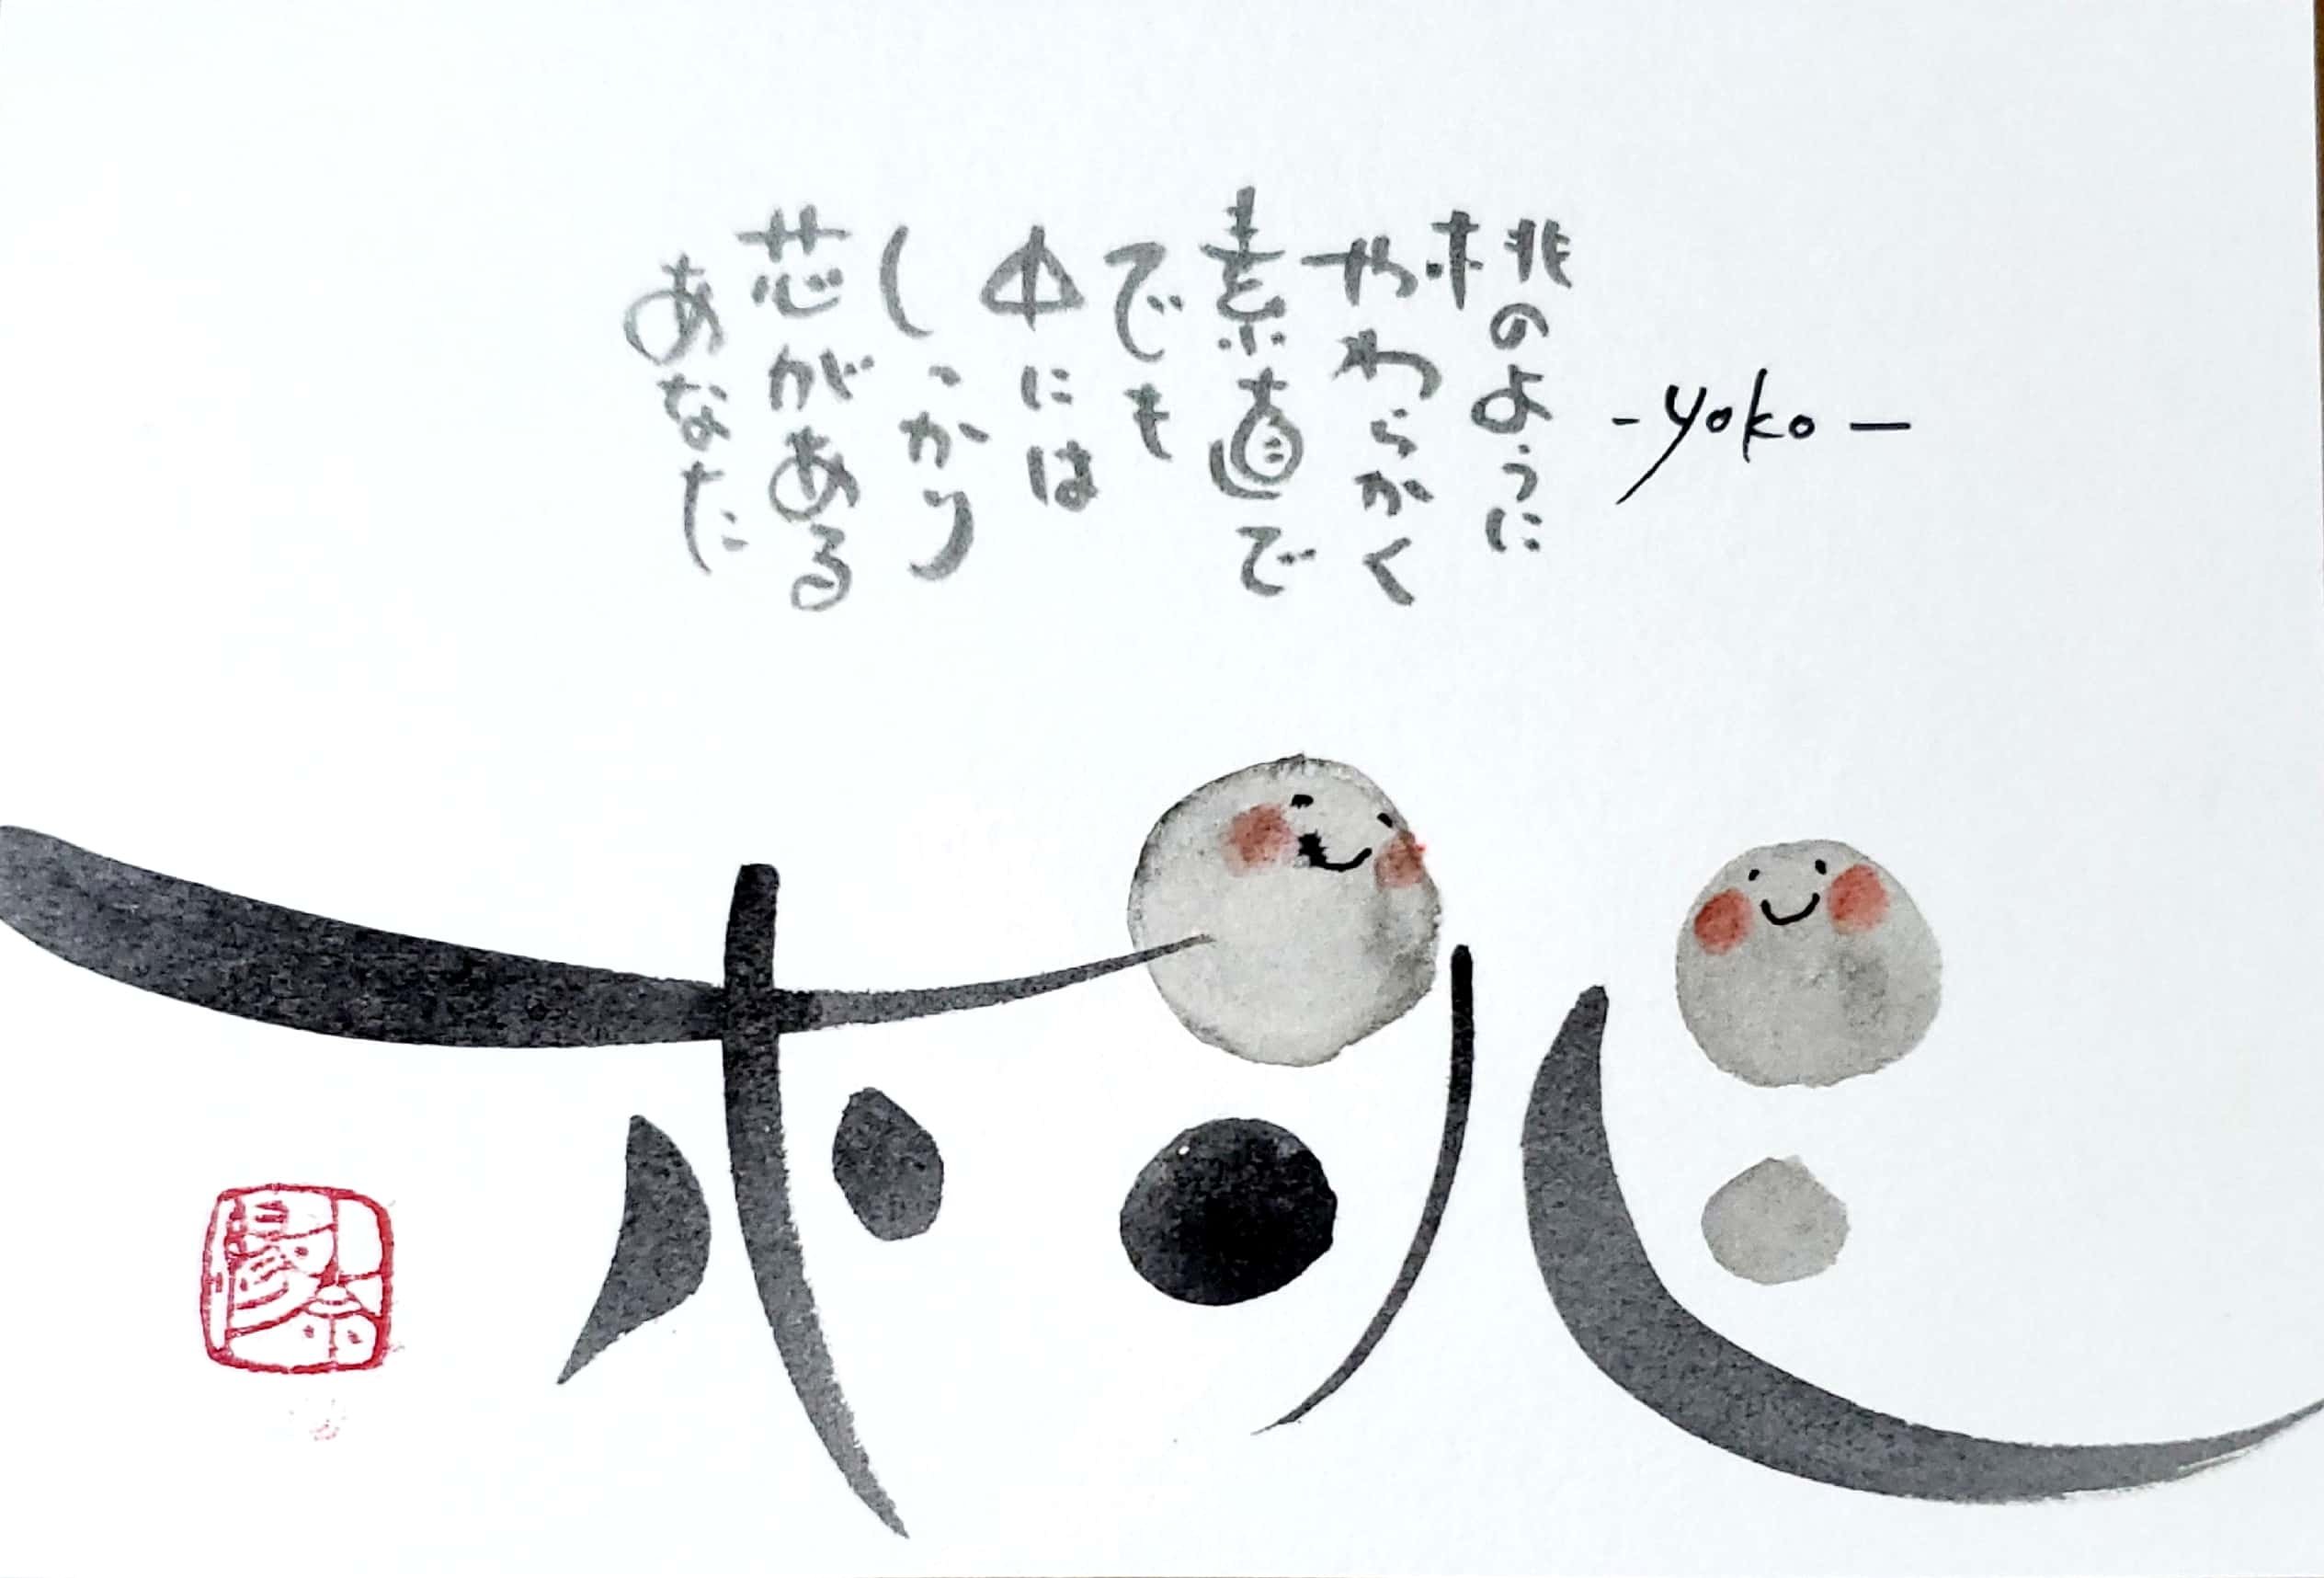 -yoko-
桃のように
やわらかく
素直で
でも
中には
しっかり
芯がある
あなた
桃